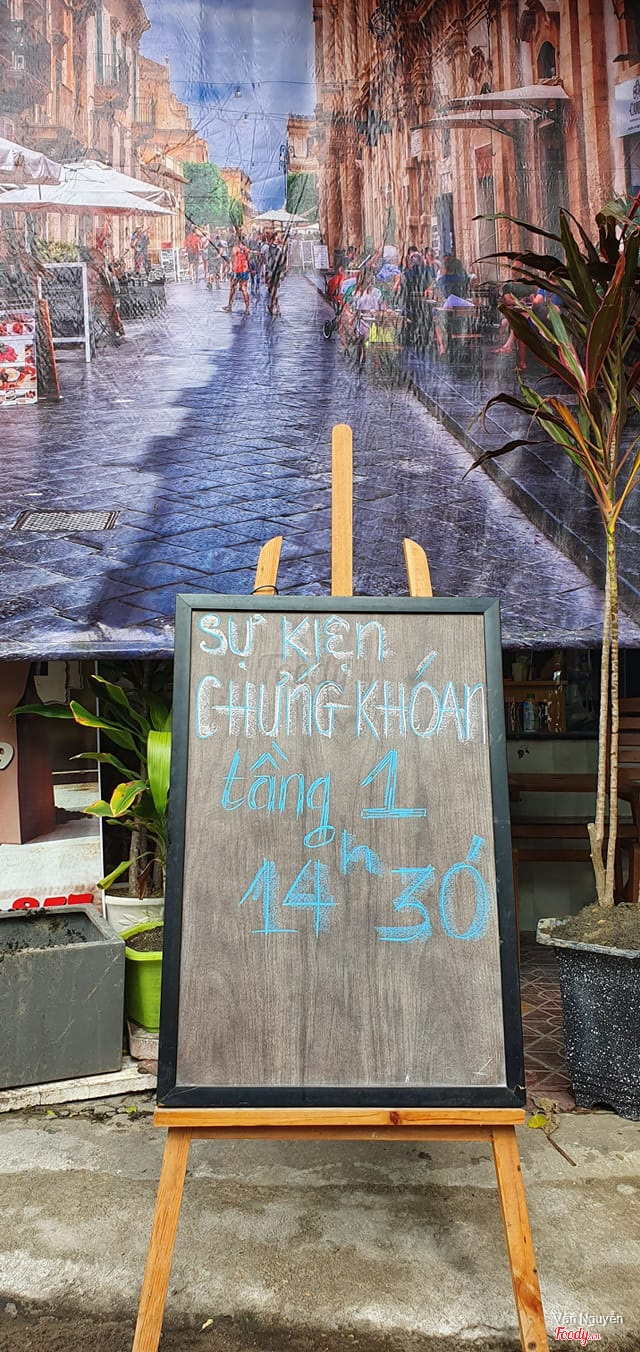 SỰ KIỆN
CHỨNG KHÓAN
tầng 1
14h30
Vân Nguyễn
Foody.vn